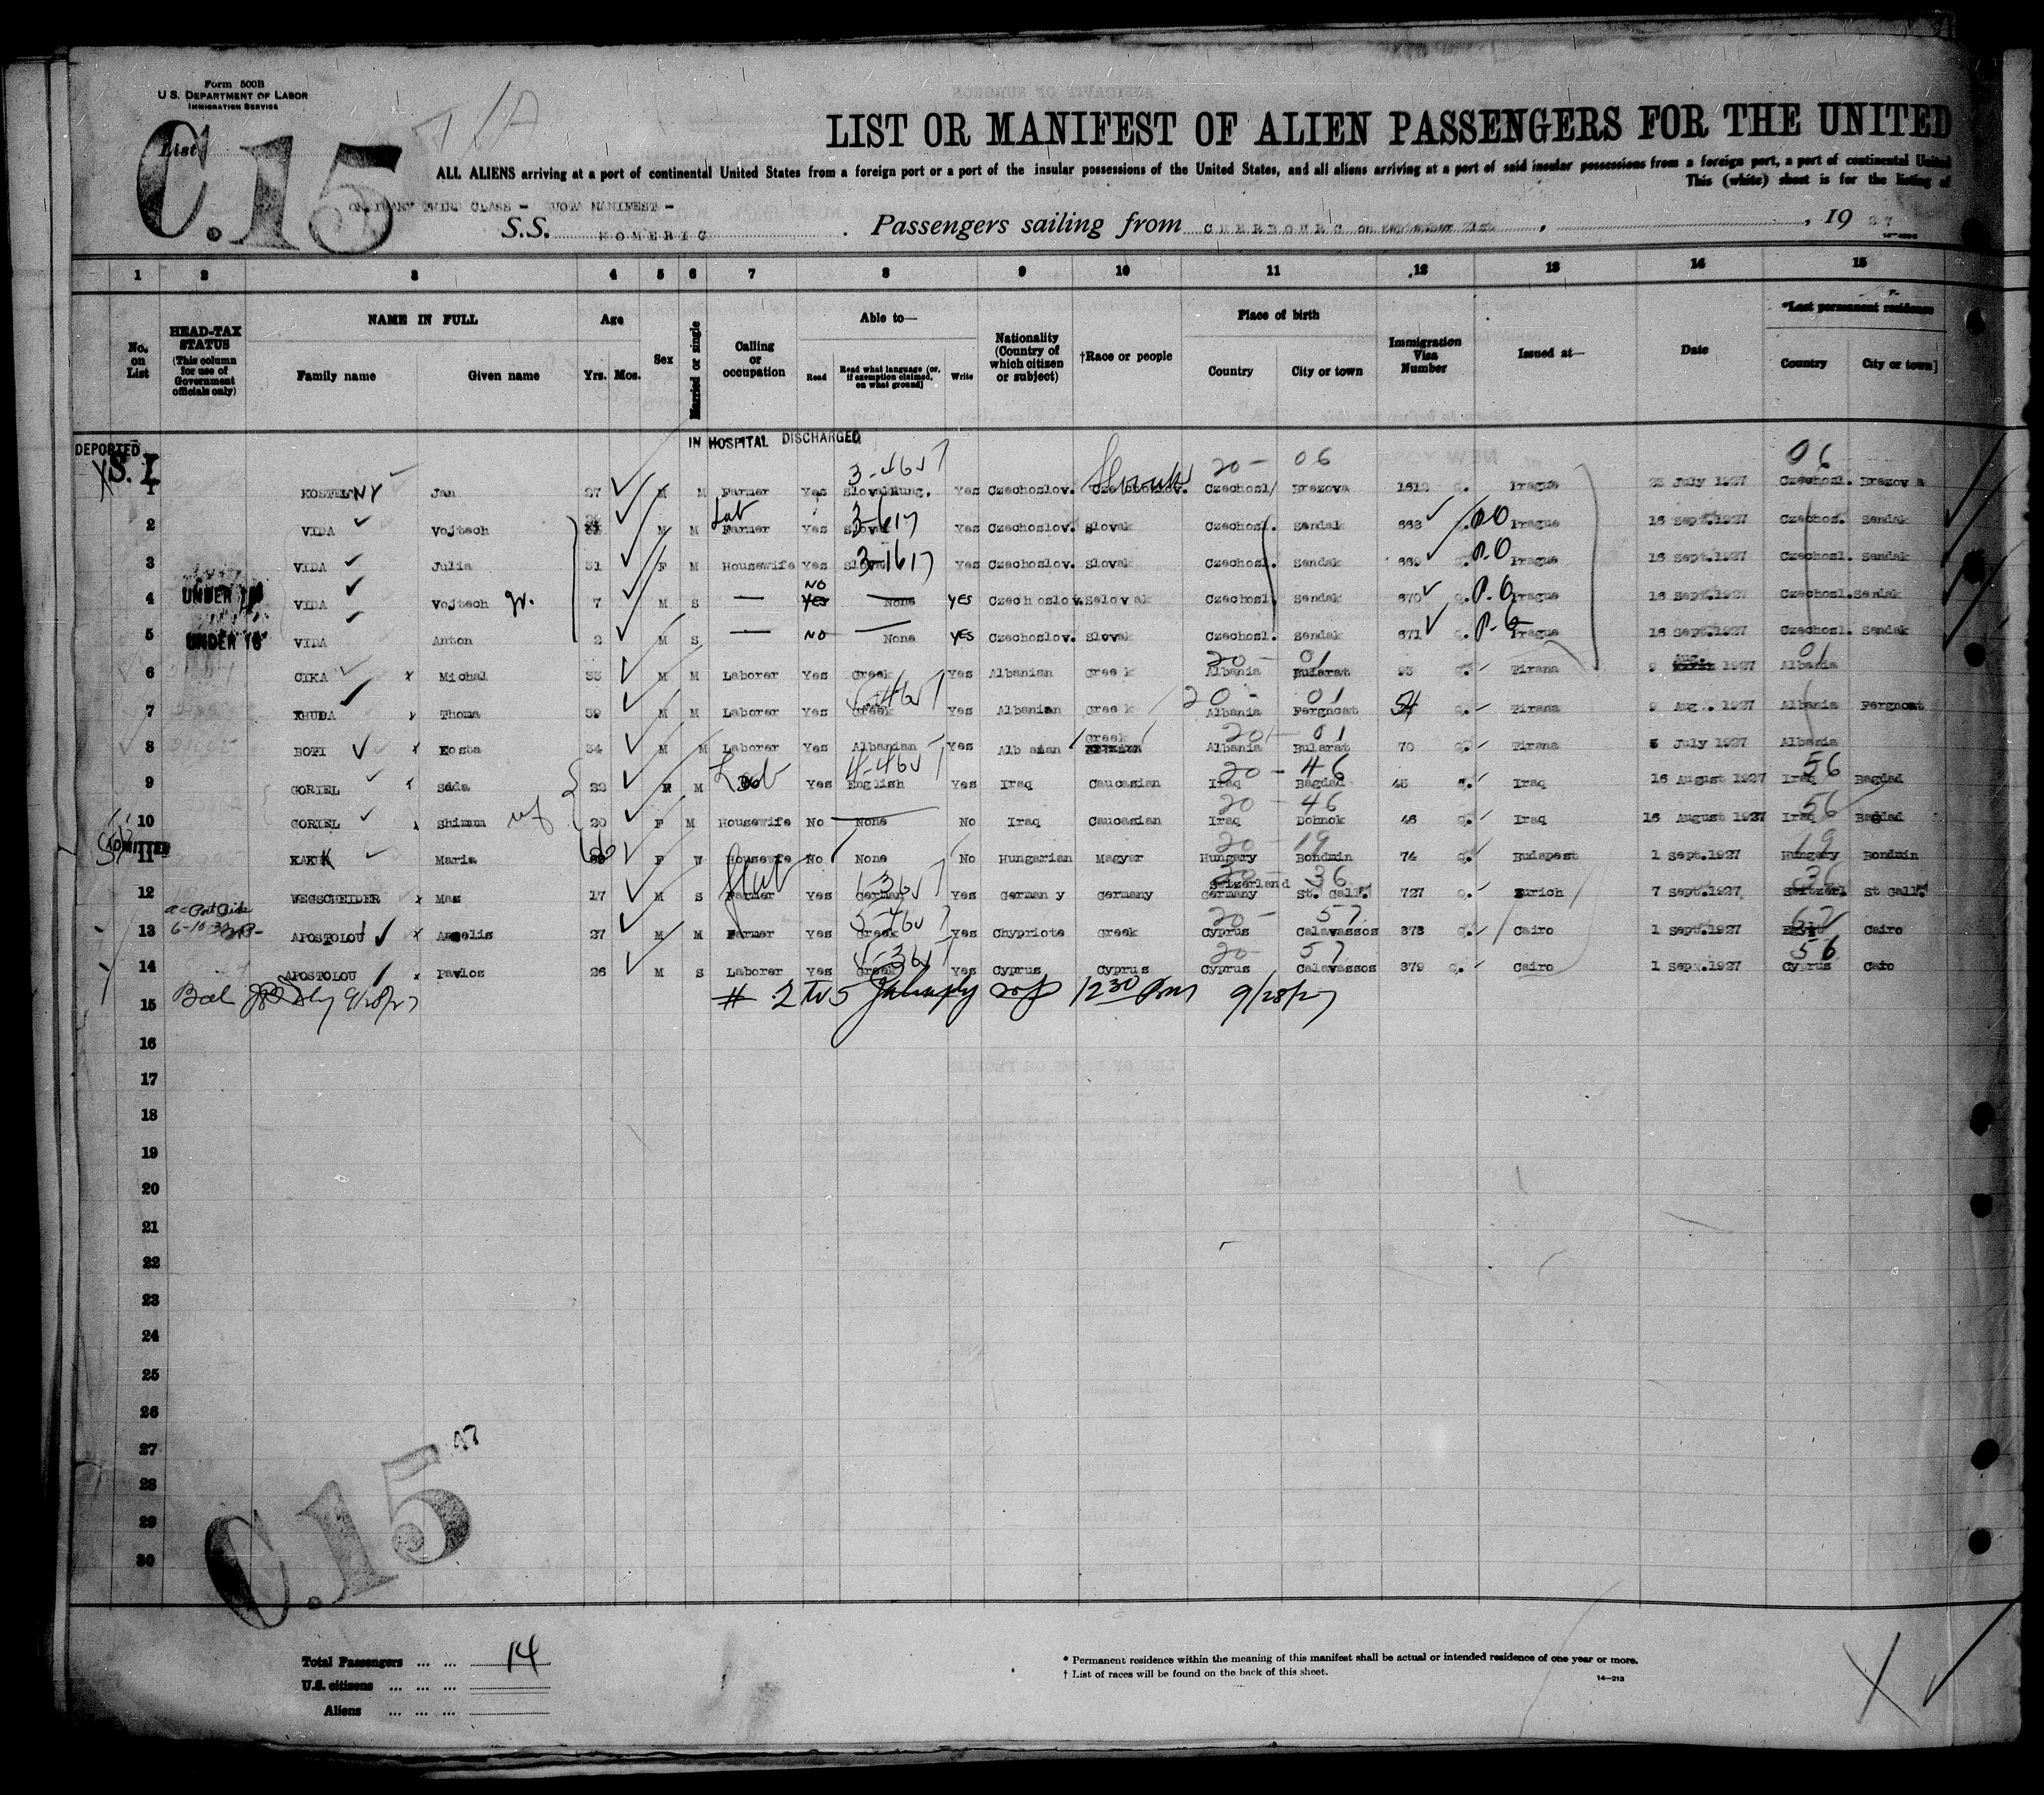 Form 500B
U. S. DEPARTMENT OF LABOR
IMMIGRATION SERVICE
List
C.15
LIST OR MANIFEST OF ALIEN PASSENGERS FOR THE UNITED
ALL ALIENS arriving at a port of continental United States from a foreign port or a port of the insular possessions of the United States, and all aliens arriving at a port of said insular possessions from a foreign port, a port of continental United
This (white) sheet is for the listing of
ORDINARY THIRD CLASS - QUOTA MANIFEST -
S.S. HOMERIC. Passengers sailing from CHERBOURG on September 21st, , 19 27
1 2 3 4 5 6 7 8 9 10 11 12 13 14 15
No. on List
HEAD-TAX STATUS (This column for use of Government officials only)
NAME IN FULL
Family name Given name
Age
Yrs. Mos.
Sex
Married or single
Calling or occupation
Able to—
Read Read what language (or, if exemption claimed, on what ground) Write
Nationality (Country of which citizen or subject)
†Race or people
Place of birth
Country City or town
Immigration Visa Number
Issued at—
Date
*Last permanent residence
Country City or town
IN HOSPITAL DISCHARGED
DEPORTED
S. I.
3-46
20 - 06 06
Slovak
1 KOSTELNY Jan 27 M M Farmer Yes Slovak Hung. Yes Czechoslov. Czechosl. Brezova 1612 Q. Prague 23 July 1927 Czechosl. Brezova
Lab
2 VIDA Vojtech M M Farmer Yes Slovak Yes Czechoslov. Slovak Czechosl. Sendak 668 Q. PO Prague 16 Sept.1927 Czechos. Sendak
3 VIDA Julia 31 F M Housewife Yes Yes Czechoslov. Slovak Czechosl. Sendak 669 Q. P.O Prague 16 Sept.1927 Czechosl. Sendak
NO
4 UNDER 16 VIDA Vojtech Jr. 7 M S — Yes None YES Czechoslov. Selovak Czechosl. Sendak 670 Q. P.O Prague 16 Sept.1927 Czechosl. Sendak
5 UNDER 16 VIDA Anton 2 M S — NO None YES Czechoslov. Slovak Czechosl. Sendak 671 Q. Prague 16 Sept.1927 Czechosl. Sendak
20 - 01 Aug 01
6 CIKA x Michal 33 M M Laborer Yes Greek Yes Albanian Greek Albania Bularat 93 Q. Tirana 9 1927 Albania
20 - 01
7 KHUDA x Thoma 39 M M Laborer Yes Greek Yes Albanian Greek Albania Pergnoat 54 Q. Tirana 9 Aug. 1927 Albania Pergnoat
Greek 20 - 01
8 BOTI x Kosta 34 M M Laborer Yes Albanian Yes Albanian Albania Bularat 70 Q. Tirana 5 July 1927 Albania
Lab 4-46 20 - 46 56
9 GORIEL x Sada M M Yes English Yes Iraq Caucasian Iraq Bagdad 45 Q. Iraq 16 August 1927 Iraq Bagdad
20 - 46 56
10 GORIEL Shimun wf 20 F M Housewife No None No Iraq Caucasian Iraq Dohnok 46 Q. Iraq 16 August 1927 Iraq Bagdad
ADMITTED
20 - 19 19
11 KAKUK Maria F W Housewife No None No Hungarian Magyar Hungary Bondmin 74 Q. Budapest 1 Sept.1927 Hungary Bondmin
20 - 36 36
Switzerland
12 WEGSCHEIDER x Max 17 M S Farmer Yes German Yes Germany Germany Germany St. Gall. 727 Q. Zurich 7 Sept.1927 Switzerl St Gall.
20 - 57
13 APOSTOLOU x Angelis 27 M M Farmer Yes Greek Yes Chypriote Greek Cyprus Calavassos 378 Q. Cairo 1 Sept.1927 Egypt Cairo
20 - 57 56
14 APOSTOLOU x Pavlos 26 M S Laborer Yes Greek Yes Cyprus Cyprus Cyprus Calavassos 379 Q. Cairo 1 Sept.1927 Cyprus Cairo
9/28/27 # 2 to 5 12 30 Pm 9/28/27
15
16
17
18
19
20
21
22
23
24
25
26
27
28
29
30
C.15 47
Total Passengers ... ... 14
U.S. citizens ... ... ...
Aliens ... ... ...
* Permanent residence within the meaning of this manifest shall be actual or intended residence of one year or more.
† List of races will be found on the back of this sheet.
14—213